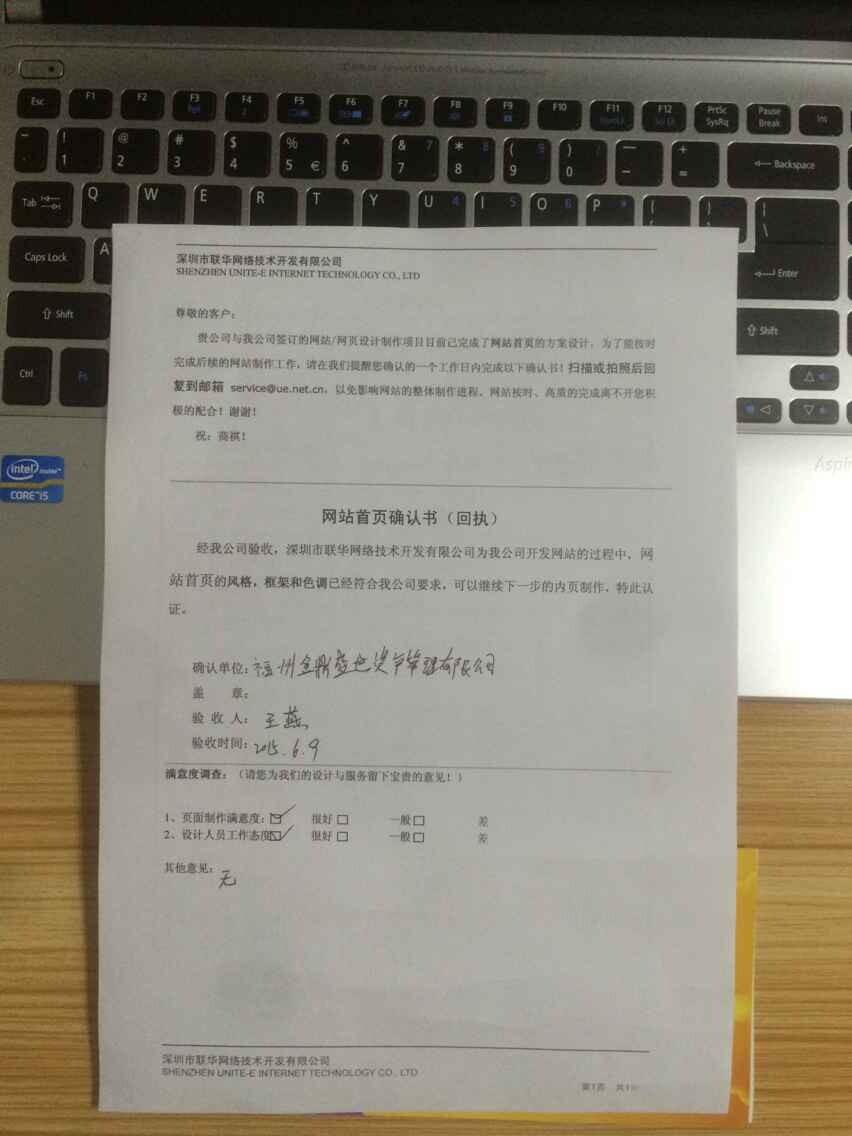 Esc F1 F2 F3 F4 F5 F6 F7 F8 F9 F10 F11 F12 PrtSc SysRq Pause Break Ins
! 1 @ 2 # 3 $ 4 % 5 € ^ 6 & 7 7 * 8 8 ( 9 9 ) 0 — - + = Backspace
Tab Q W E R T Y U 4 I 5 O 6 P *
Caps Lock A Enter
Shift Shift
Ctrl Fn
intel inside™
CORE™ i5
Aspir
深圳市联华网络技术开发有限公司
SHENZHEN UNITE-E INTERNET TECHNOLOGY CO., LTD
尊敬的客户：
贵公司与我公司签订的网站/网页设计制作项目目前已完成了网站首页的方案设计，为了能按时
完成后续的网站制作工作，请在我们提醒您确认的一个工作日内完成以下确认书！扫描或拍照后回
复到邮箱 service@ue.net.cn，以免影响网站的整体制作进程，网站按时、高质的完成离不开您积
极的配合！谢谢！
祝：商祺！
网站首页确认书（回执）
经我公司验收，深圳市联华网络技术开发有限公司为我公司开发网站的过程中，网
站首页的风格，框架和色调已经符合我公司要求，可以继续下一步的内页制作，特此认
证。
确认单位：福州金鼎盛世资产管理有限公司
盖 章：
验 收 人：王燕
验收时间：2015.6.9
满意度调查：（请您为我们的设计与服务留下宝贵的意见！）
1、页面制作满意度：☑ 很好□ 一般□ 差
2、设计人员工作态度☑ 很好□ 一般□ 差
其他意见：无
深圳市联华网络技术开发有限公司
SHENZHEN UNITE-E INTERNET TECHNOLOGY CO., LTD
第1页 共1